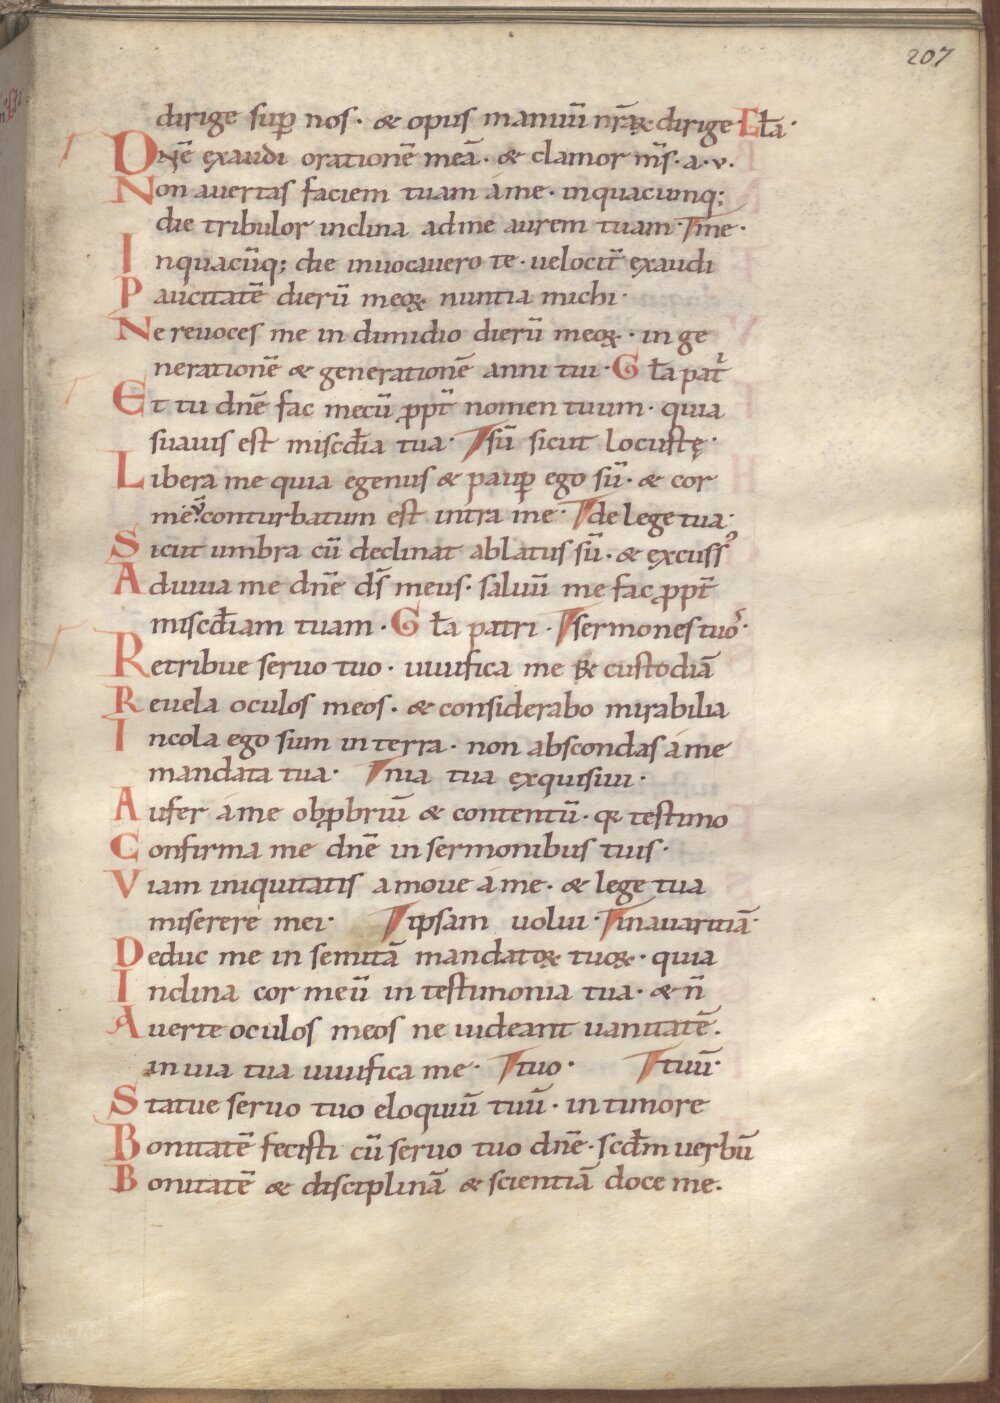 207
dirige sup̱ nos · & opus manuū nr̄aꝝ dirige · Gl̄a ·
Dn̄e exaudi orationē meā · & clamor m̄s · a · v ·
Non auertas faciem tuam áme · inquacumq;
die tribulor inclina adme aurem tuam · me ·
Inquacūq; die inuocauero te · uelocit̄ exaudi
Paucitatē dierū meoꝝ nuntia michi ·
Ne reuoces me in dimidio dierū meoꝝ · in ge
nerationē & generationē anni tui · Gl̄a pat̄
Et tu dn̄e fac mecū ꝓpt̄ nomen tuum · quia
suauis est misc̄dia tua · sū sicut locustę ·
Libera me quia egenus & paup̱ ego sū · & cor
meū conturbatum est intra me · de lege tua ·
Sicut umbra cū declinat ablatus sū · & excuss᾿
Adiuua me dn̄e ds̄ meus · saluū me fac ꝓpt̄
misc̄diam tuam · Gl̄a patri · sermones tuo᾿s ·
Retribue seruo tuo · uiuifica me & custodiā
Reuela oculos meos · & considerabo mirabilia
Incola ego sum in terra · non abscondas áme
mandata tua · nia tua exquisiui ·
Aufer áme obꝓbriū & contentū · qꝛ testimo
Confirma me dn̄e in sermonibus tuis ·
Viam iniquitatis amoue áme · & lege tua
miserere mei · ipsam uolui · inauaritiā ·
Deduc me in semitā mandatoꝝ tuoꝝ · quia
Inclina cor meū in testimonia tua · & n̄
Auerte oculos meos ne uideant uanitatē ·
in uia tua uiuifica me · tuo · tuū ·
Statue seruo tuo eloquiū tuū · in timore
Bonitatē fecisti cū seruo tuo dn̄e · scd̄m uerbū
Bonitatē & disciplinā & scientiā doce me ·